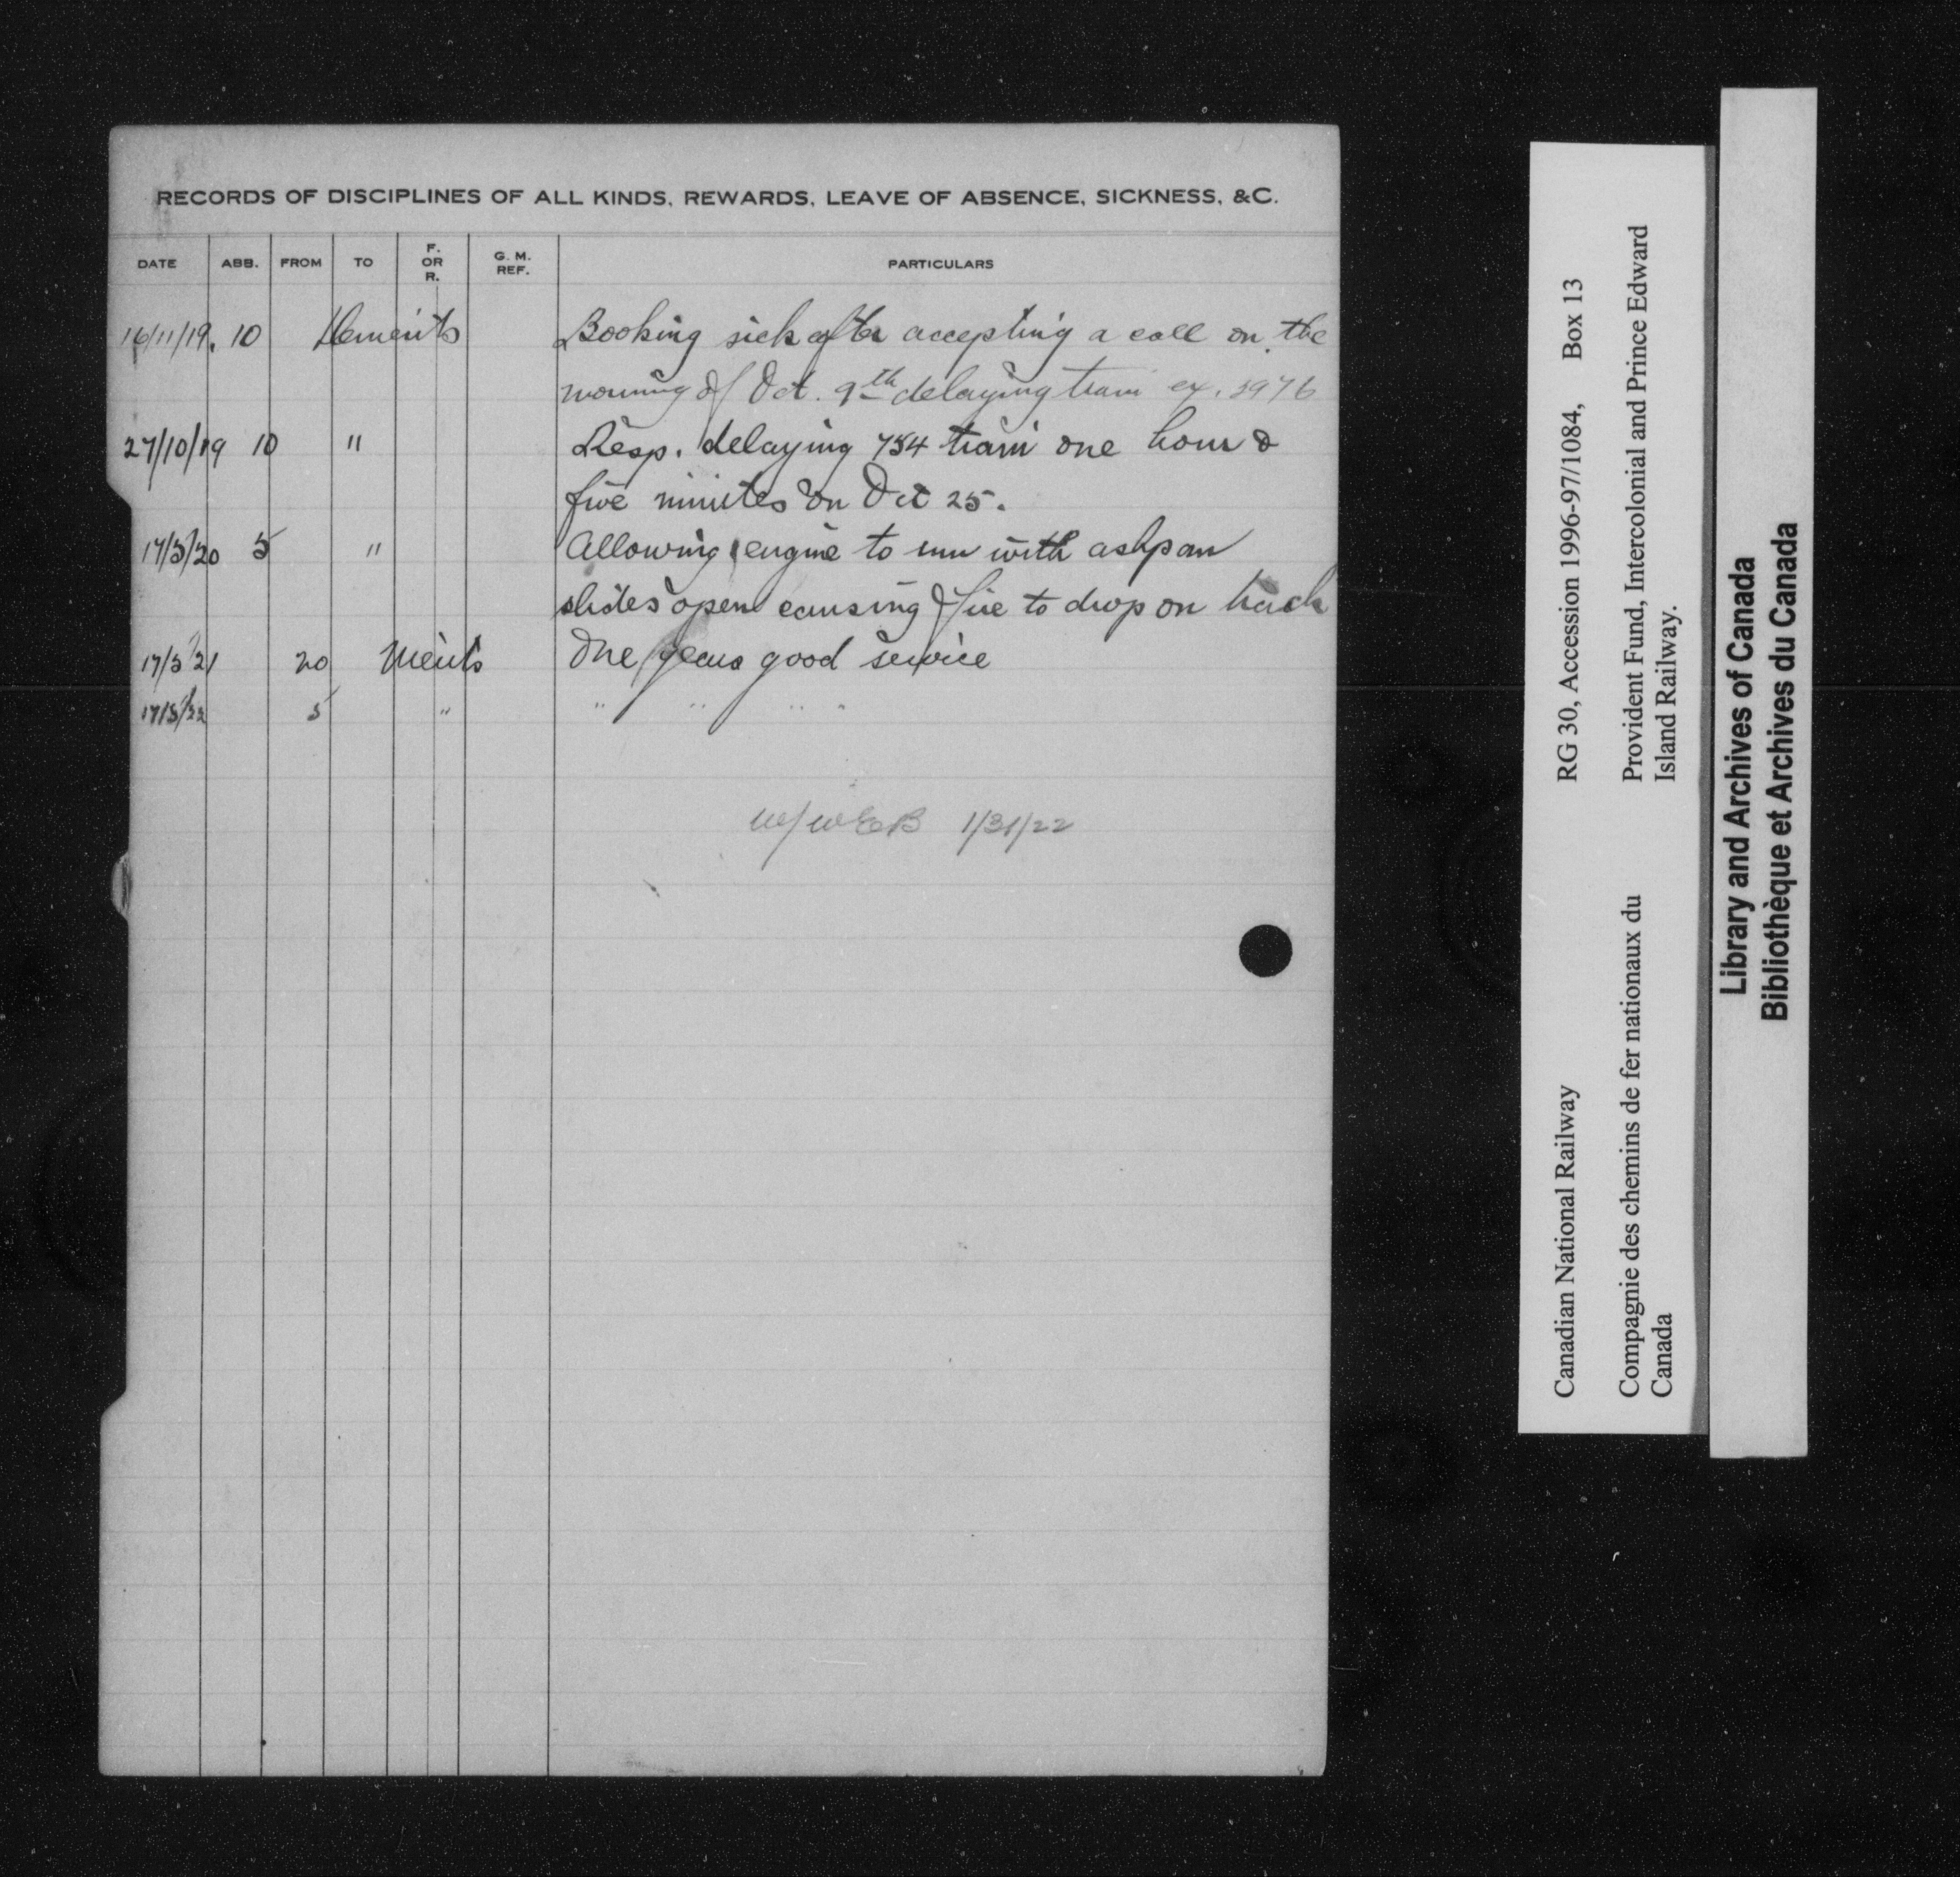 RECORDS OF DISCIPLINES OF ALL KINDS, REWARDS, LEAVE OF ABSENCE, SICKNESS, &C.
DATE ABB. FROM TO F. OR R. G. M. REF. PARTICULARS
16/11/19. 10 Demerits Booking sick after accepting a call on the
morning of Oct. 9th delaying train ex. 3976
27/10/19 10 " Resp. delaying 754 train one hour &
five minutes on Oct 25.
17/3/20 5 " Allowing engine to run with ashpan
slides open causing fire to drop on track
17/3/21 20 Merits One years good service
17/3/22 5 " " " " "
1/31/22
Canadian National Railway RG 30, Accession 1996-97/1084, Box 13
Compagnie des chemins de fer nationaux du Provident Fund, Intercolonial and Prince Edward
Canada Island Railway.
Library and Archives of Canada
Bibliothèque et Archives du Canada